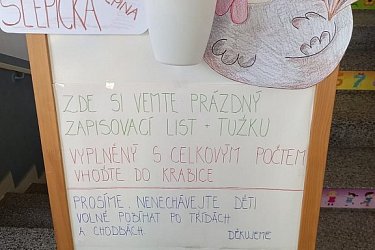 SLEPIČKA
ZDE SI VEMTE PRÁZDNÝ
ZAPISOVACÍ LIST + TUŽKU
VYPLNĚNÝ S CELKOVÝM POČTEM
VHOĎTE DO KRABICE
PROSÍME, NENECHÁVEJTE DĚTI
VOLNĚ POBÍHAT PO TŘÍDÁCH
A CHODBÁCH. DĚKUJEME